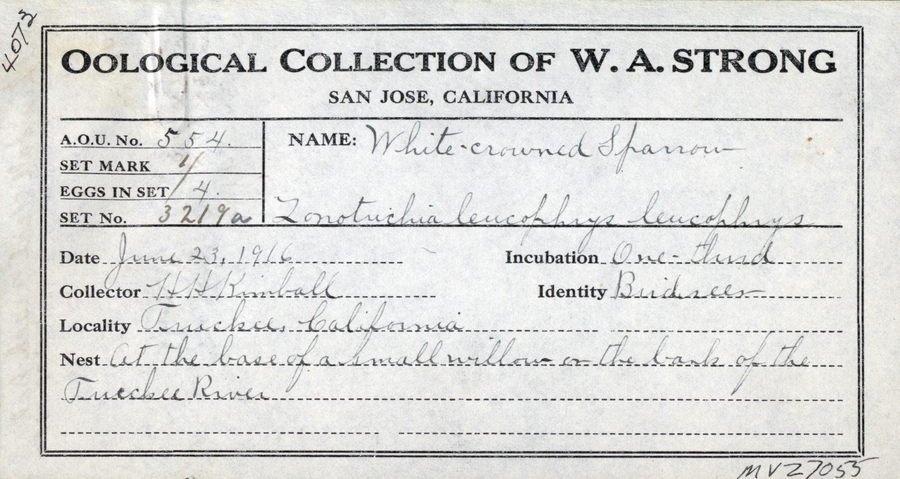 4073
OOLOGICAL COLLECTION OF W. A. STRONG
SAN JOSE, CALIFORNIA
A.O.U. No. 554.
SET MARK 1/
EGGS IN SET 4.
SET No. 3219a
NAME: White-crowned Sparrow
Zonotrichia leucophrys leucophrys
Date June 23, 1916
Incubation One-third
Collector H H Kimball
Identity Bird seen
Locality Truckee, California
Nest At the base of a small willow on the bank of the
Truckee River
MVZ 7055